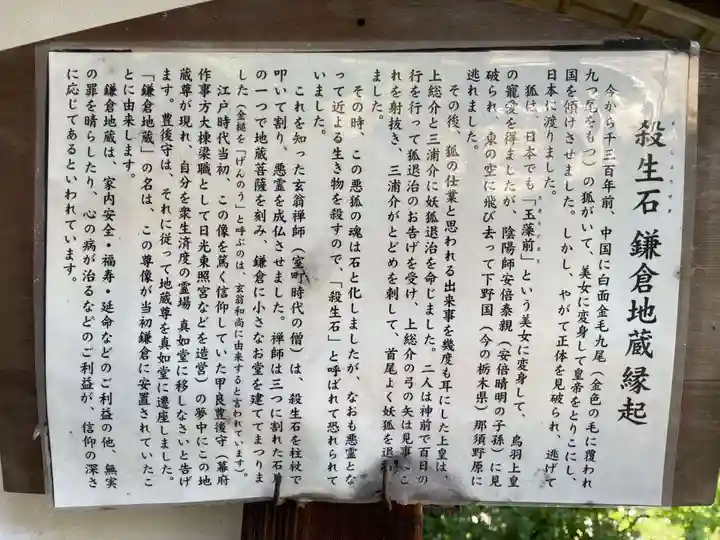 殺生石 鎌倉地蔵縁起
今から千三百年前、中国に白面金毛九尾(金色の毛に覆われ
九つ尾をもつ)の狐がいて、美女に変身して皇帝をとりこにし、
国を傾けさせました。しかし、やがて正体を見破られ、逃げて
日本に渡りました。
狐は、日本でも「玉藻前」という美女に変身して、鳥羽上皇
の寵愛を得ましたが、陰陽師安倍泰親(安倍晴明の子孫)に見
破られ、東の空に飛び去って下野国(今の栃木県)那須野原に
逃れました。
その後、狐の仕業と思われる出来事を幾度も耳にした上皇は、
上総介と三浦介に妖狐退治を命じました。二人は神前で百日の
行を行って狐退治のお告げを受け、上総介の弓の矢は見事
れを射抜き、三浦介がとどめを刺して、首尾よく妖狐を退
ました。
その時、この悪狐の魂は石と化しましたが、なおも悪霊とな
って近よる生き物を殺すので、「殺生石」と呼ばれて恐れられて
いました。
これを知った玄翁禅師(室町時代の僧)は、殺生石を柱杖で
叩いて割り、悪霊を成仏させました。禅師は三つに割れた石
の一つで地蔵菩薩を刻み、鎌倉に小さなお堂を建ててまつりま
した(金鎚を「げんのう」と呼ぶのは、玄翁和尚に由来すると言われています)。
江戸時代当初、この像を篤く信仰していた甲良豊後守(幕府
作事方大棟梁職として日光東照宮などを造営)の夢中にこの地
蔵尊が現れ、自分を衆生済度の霊場 真如堂に移しなさいと告げ
ます。豊後守は、それに従って地蔵尊を真如堂に遷座しました。
「鎌倉地蔵」の名は、この尊像が当初鎌倉に安置されていたこ
とに由来します。
鎌倉地蔵は、家内安全・福寿・延命などのご利益の他、無実
の罪を晴らしたり、心の病が治るなどのご利益が、信仰の深さ
に応じてあるといわれています。